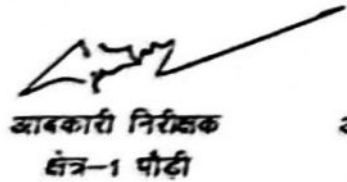 आबकारी निरीक्षक
क्षेत्र-1 पौढ़ी